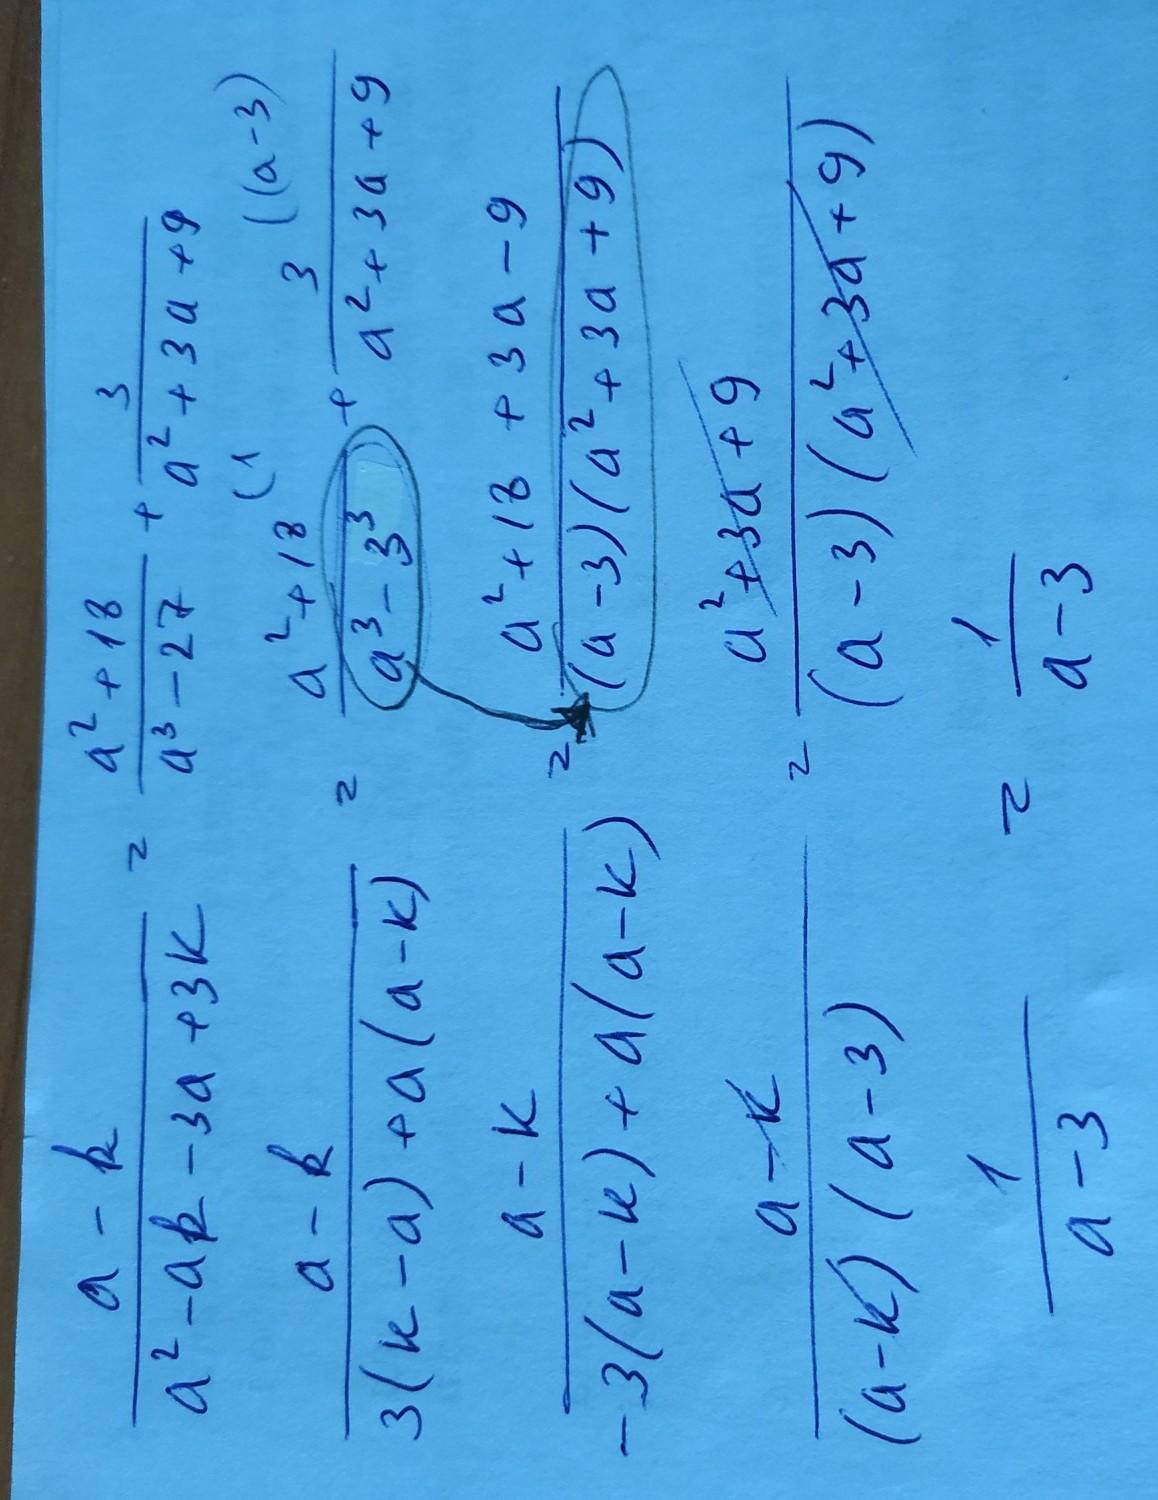 (a - k)/(a² - ak - 3a + 3k) = (a² + 18)/(a³ - 27) + 3/(a² + 3a + 9)
(1 ((a-3)
(a - k)/(3(k - a) + a(a - k)) = (a² + 18)/(a³ - 3³) + 3/(a² + 3a + 9)
(a - k)/(-3(a - k) + a(a - k)) = (a² + 18 + 3a - 9)/((a - 3)(a² + 3a + 9))
(a - k)/((a - k)(a - 3)) = (a² + 3a + 9)/((a - 3)(a² + 3a + 9))
1/(a - 3) = 1/(a - 3)